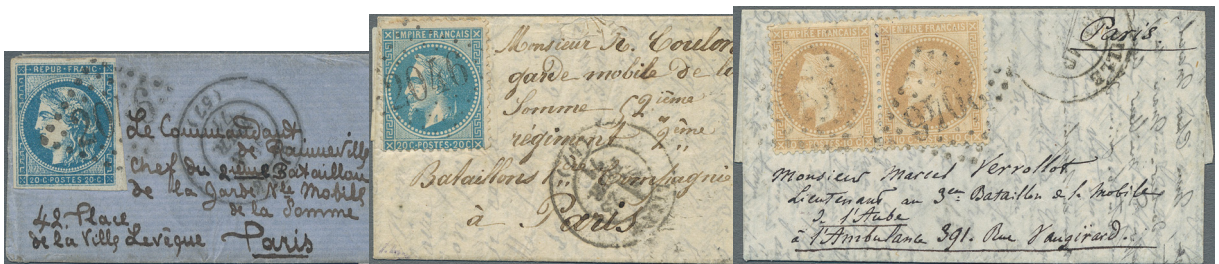 REPUB·FRANC·
20 C·POSTES·20 C
Le Commandant
de Rainneville
Chef du 2ieme Bataillon
de la Garde Nle Mobile
de la Somme
42. Place
de la Ville Levêque Paris
EMPIRE FRANÇAIS
20 C POSTES 20 C
2046
Monsieur R. Coulon
garde mobile de la
Somme
régiment 2ème
Bataillons 1e Compagnie
à Paris
EMPIRE FRANÇAIS
EMPIRE FRANÇAIS
2046
Paris
Monsieur Marcel Verrollot
Lieutenant au 3en Bataillon de la Mobile
d l'Aube
à l'Ambulance 391. Rue Vaugirard.